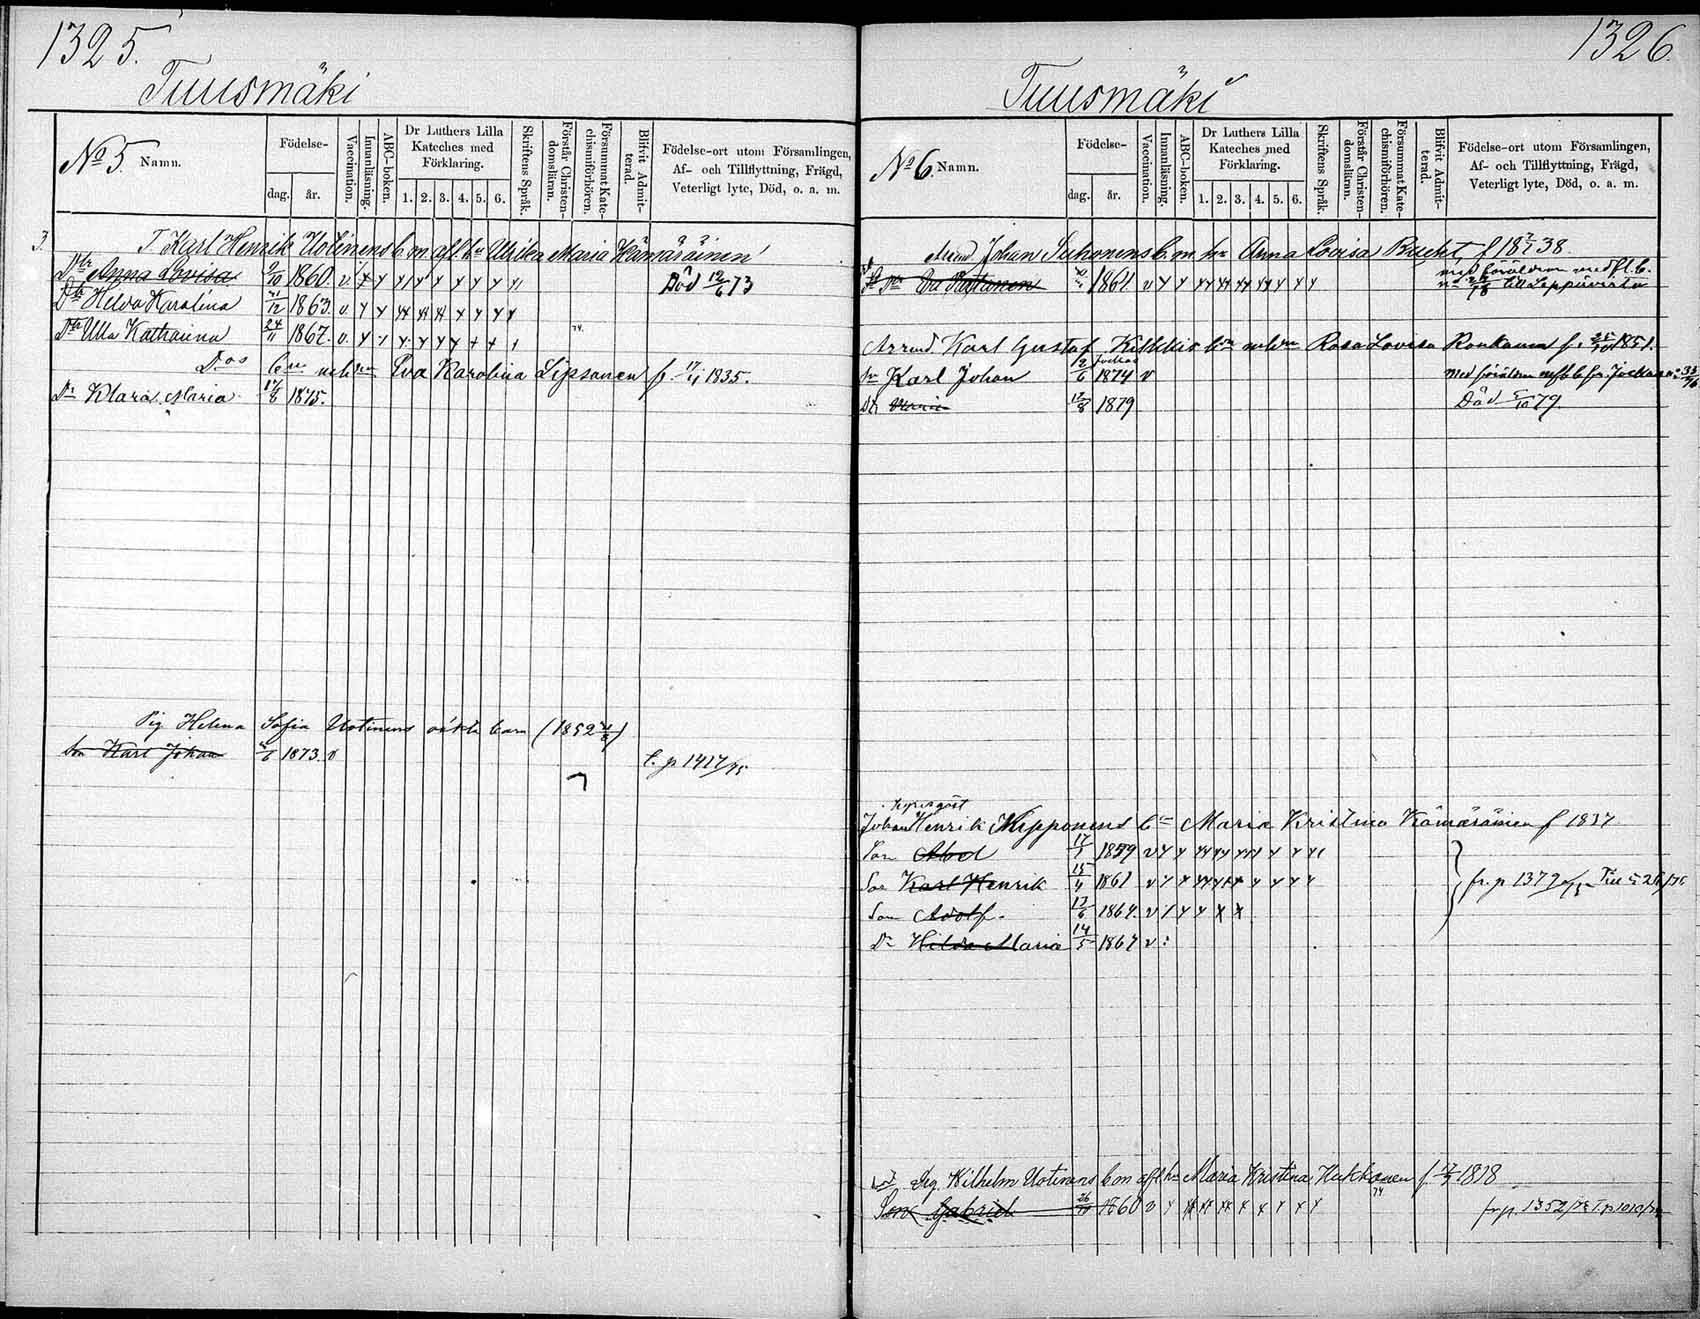 1325.
Tuusmäki
No 5. Namn.
Födelse-
dag. år.
Vaccination.
Innanläsning.
ABC-boken.
Dr Luthers Lilla
Kateches med
Förklaring.
1. 2. 3. 4. 5. 6.
Skriftens Språk.
Förstår Christen-
domsläran.
Försummat Kate-
chismiförhören.
Blifvit Admit-
terad.
Födelse-ort utom Församlingen,
Af- och Tillflyttning, Frägd,
Veterligt lyte, Död, o. a. m.
3. T. Karl Henrik Uotinens b m afl. hu Ulrika Maria Kämäräinen
Dtr Anna Lovisa 9/10 1860. v. Död 12/6 73
Dtr Helda Karolina 1863. v.
Dtr Ulla Katharina 24/11 1867. v. 74.
Dos Eva Karolina Lipsanen f. 17/11 1835.
Dr Klara Maria 17/6 1875.
Pig Helena Sofia Uotinens oäkta barn (1852
Son Karl Johan 1873. v t. p 1417/75
1326.
Tuusmäki
No 6. Namn.
Födelse-
dag. år.
Vaccination.
Innanläsning.
ABC-boken.
Dr Luthers Lilla
Kateches med
Förklaring.
1. 2. 3. 4. 5. 6.
Skriftens Språk.
Förstår Christen-
domsläran.
Försummat Kate-
chismiförhören.
Blifvit Admit-
terad.
Födelse-ort utom Församlingen,
Af- och Tillflyttning, Frägd,
Veterligt lyte, Död, o. a. m.
Johan Suhonens b. m hu Anna Lovisa f 38.
1861. v med föräldrar med fl. b. till Leppävirta
Arrend Karl Gustaf Rosa Lovisa Ronkanen f. 25/10 1851.
Sn Karl Johan 12/6 1874 v med föräldrar
Dr 1879 Död 5/10 79.
Johan Henrik Kipponens Maria Kristina Kämäräinen f 1837
Son Abel 17/1 1859 v
Son Karl Henrik 15/4 1861 v fr. p 1379
Son Adolf. 17/6 1864. v
Dr Hilda Maria 14/5 1867 v
Drg. Vilhelm Uotinens b m afl hu Maria Kristina Hukkanen f. 1818
Son Gabriel 26/11 1860 v 74 fr p. 1352